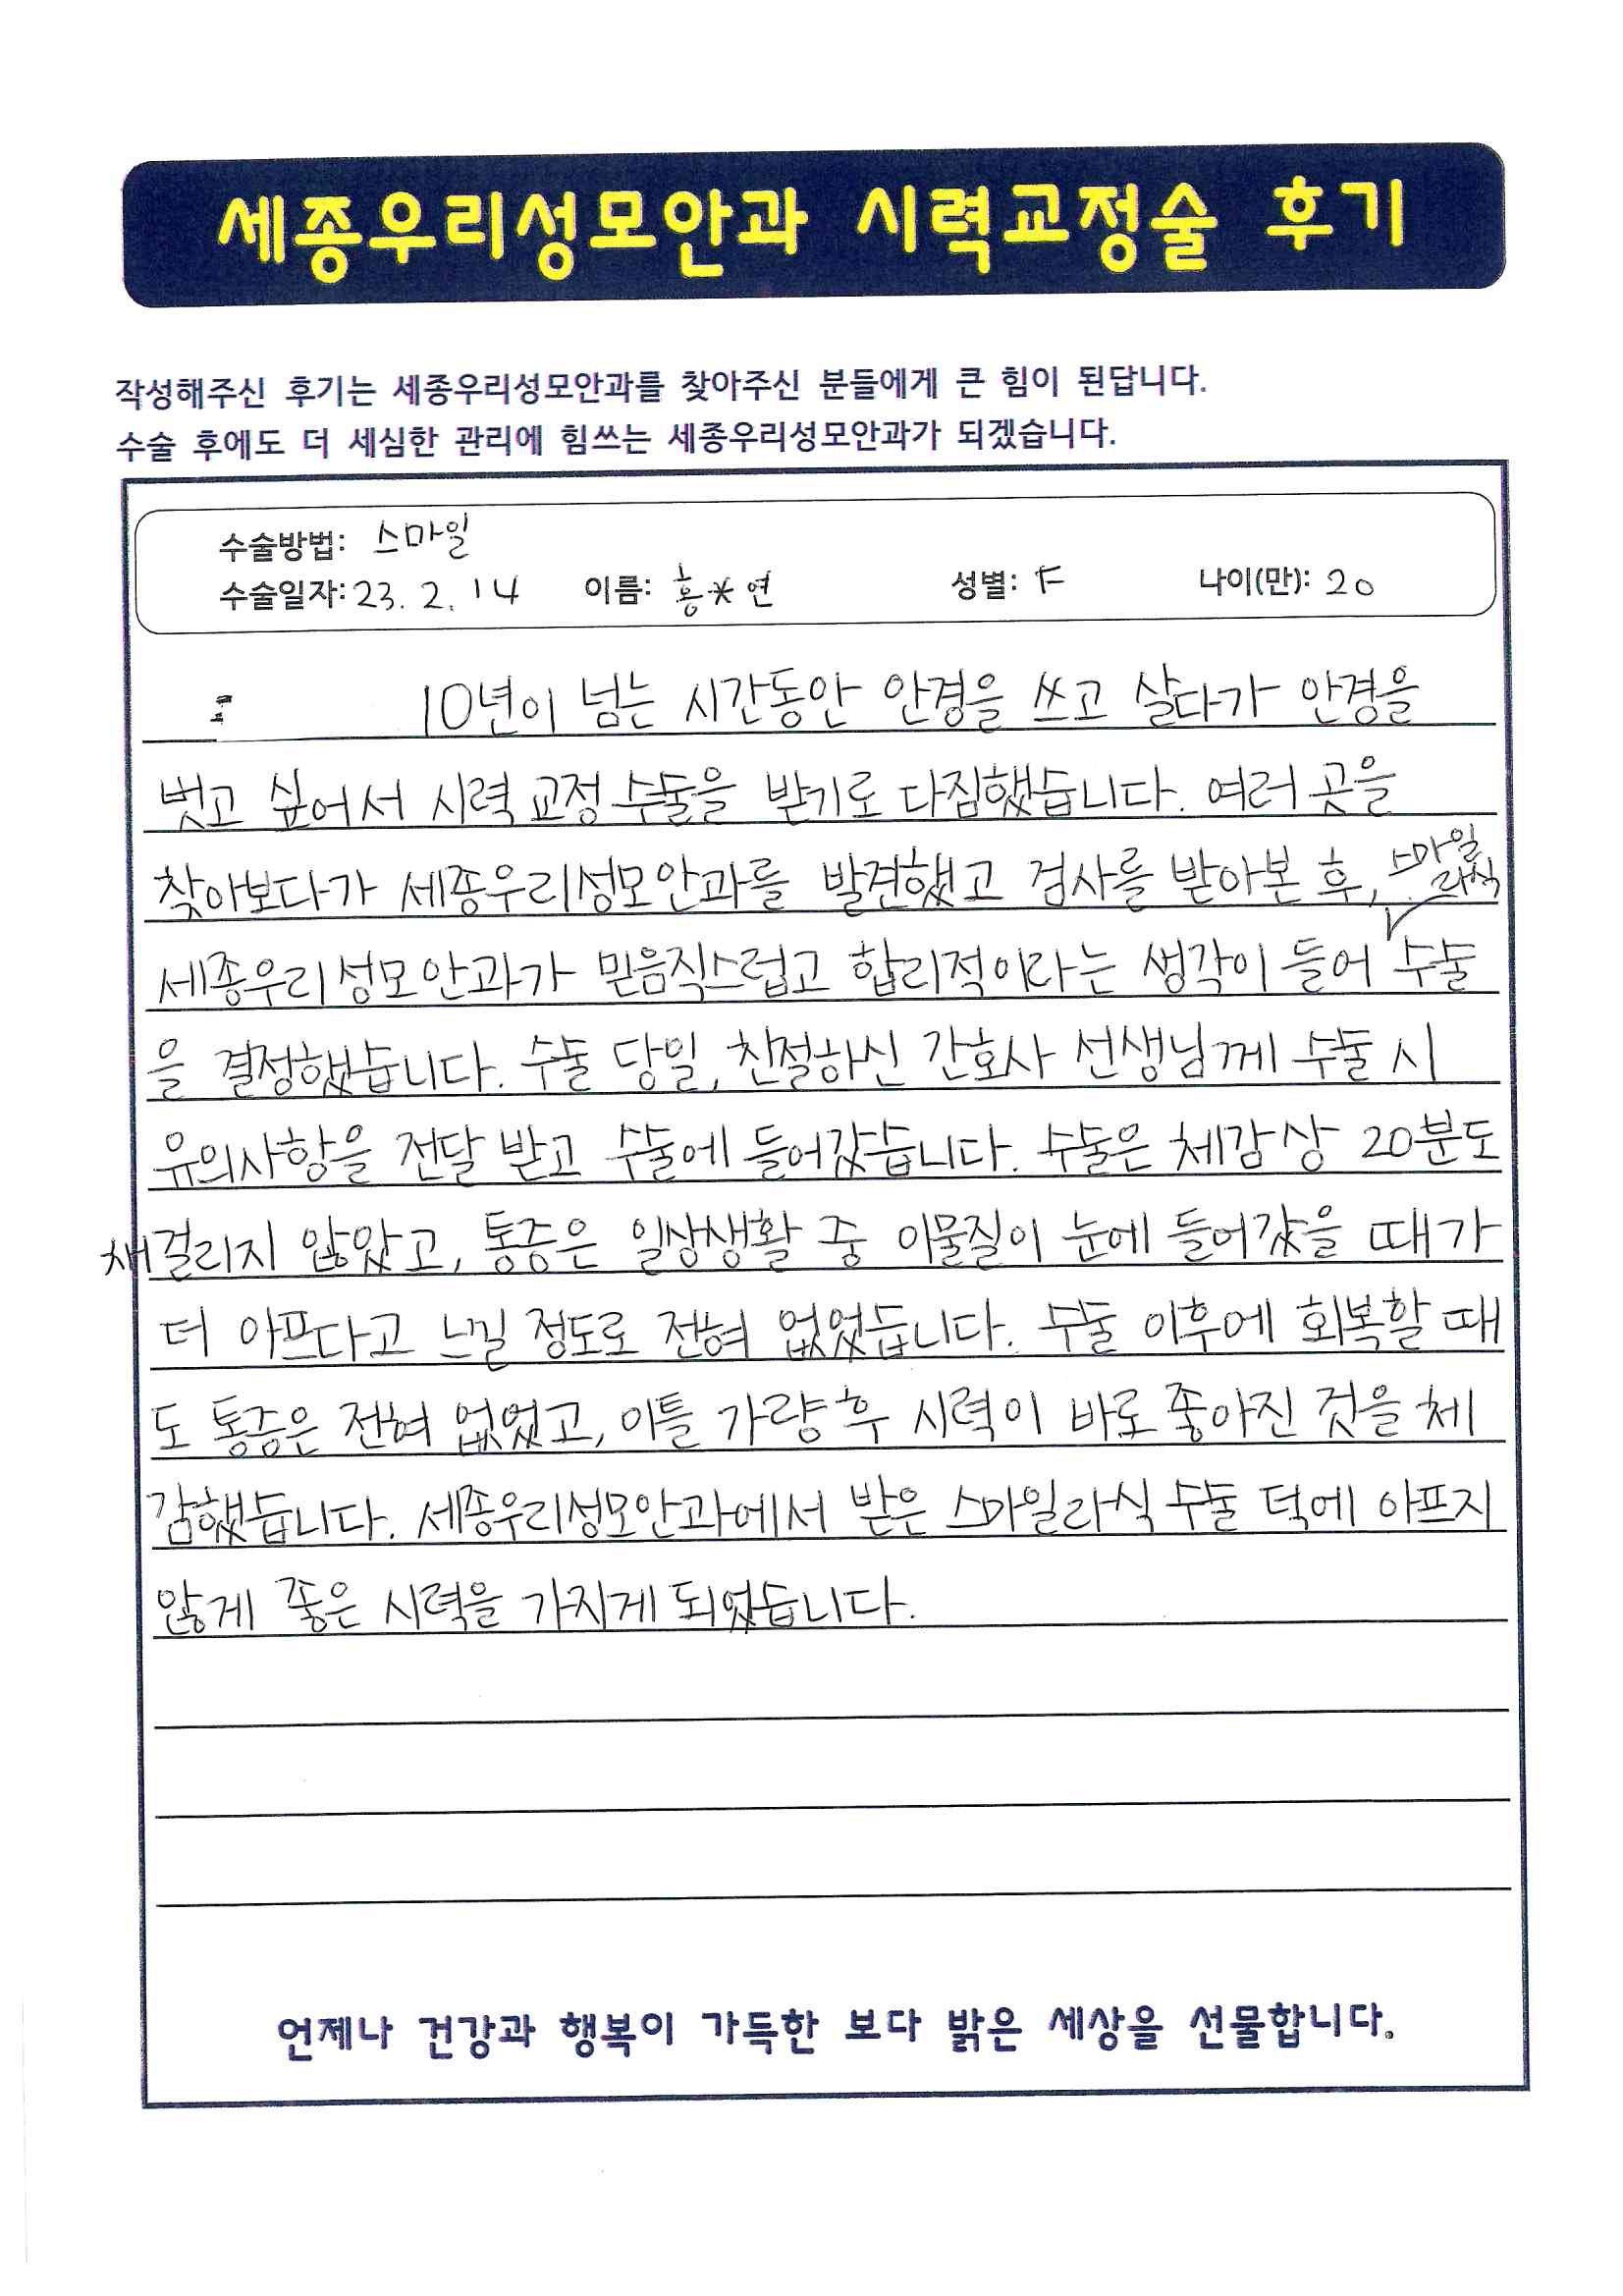 세종우리성모안과 시력교정술 후기
작성해주신 후기는 세종우리성모안과를 찾아주신 분들에게 큰 힘이 된답니다.
수술 후에도 더 세심한 관리에 힘쓰는 세종우리성모안과가 되겠습니다.
수술방법: 스마일
수술일자: 23. 2. 14 이름: 홍*연 성별: F 나이(만): 20
10년이 넘는 시간동안 안경을 쓰고 살다가 안경을
벗고 싶어서 시력 교정 수술을 받기로 다짐했습니다. 여러 곳을
찾아보다가 세종우리성모안과를 발견했고 검사를 받아본 후,
세종우리성모안과가 믿음직스럽고 합리적이라는 생각이 들어 스마일라식 수술
을 결정했습니다. 수술 당일, 친절하신 간호사 선생님께 수술 시
유의사항을 전달 받고 수술에 들어갔습니다. 수술은 체감상 20분도
채 걸리지 않았고, 통증은 일상생활 중 이물질이 눈에 들어갔을 때가
더 아프다고 느낄 정도로 전혀 없었습니다. 수술 이후에 회복할 때
도 통증은 전혀 없었고, 이틀 가량 후 시력이 바로 좋아진 것을 체
감했습니다. 세종우리성모안과에서 받은 스마일라식 수술 덕에 아프지
않게 좋은 시력을 가지게 되었습니다.
언제나 건강과 행복이 가득한 보다 밝은 세상을 선물합니다.